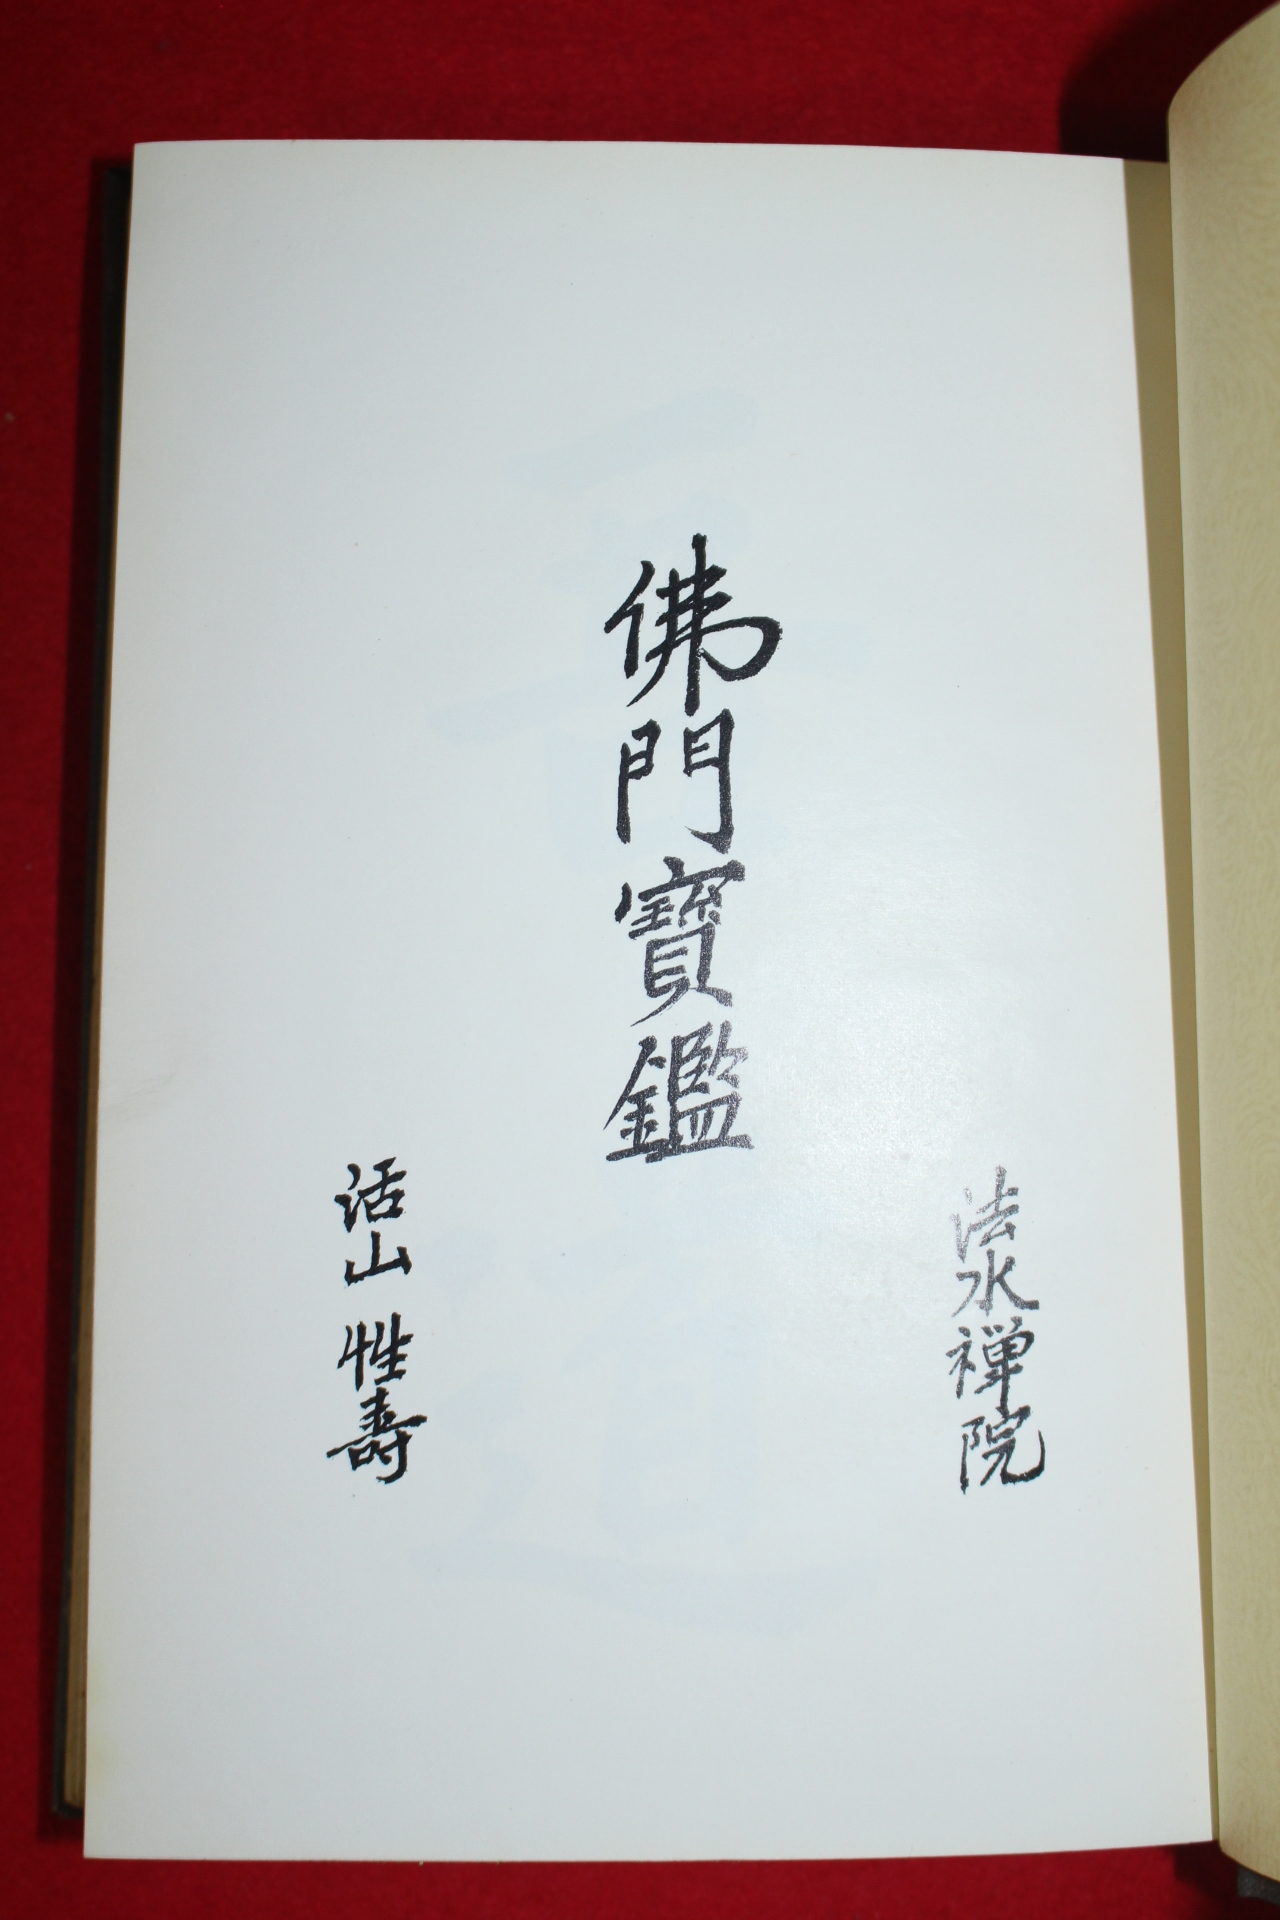 法水禅院
佛門寶鑑
活山 性壽